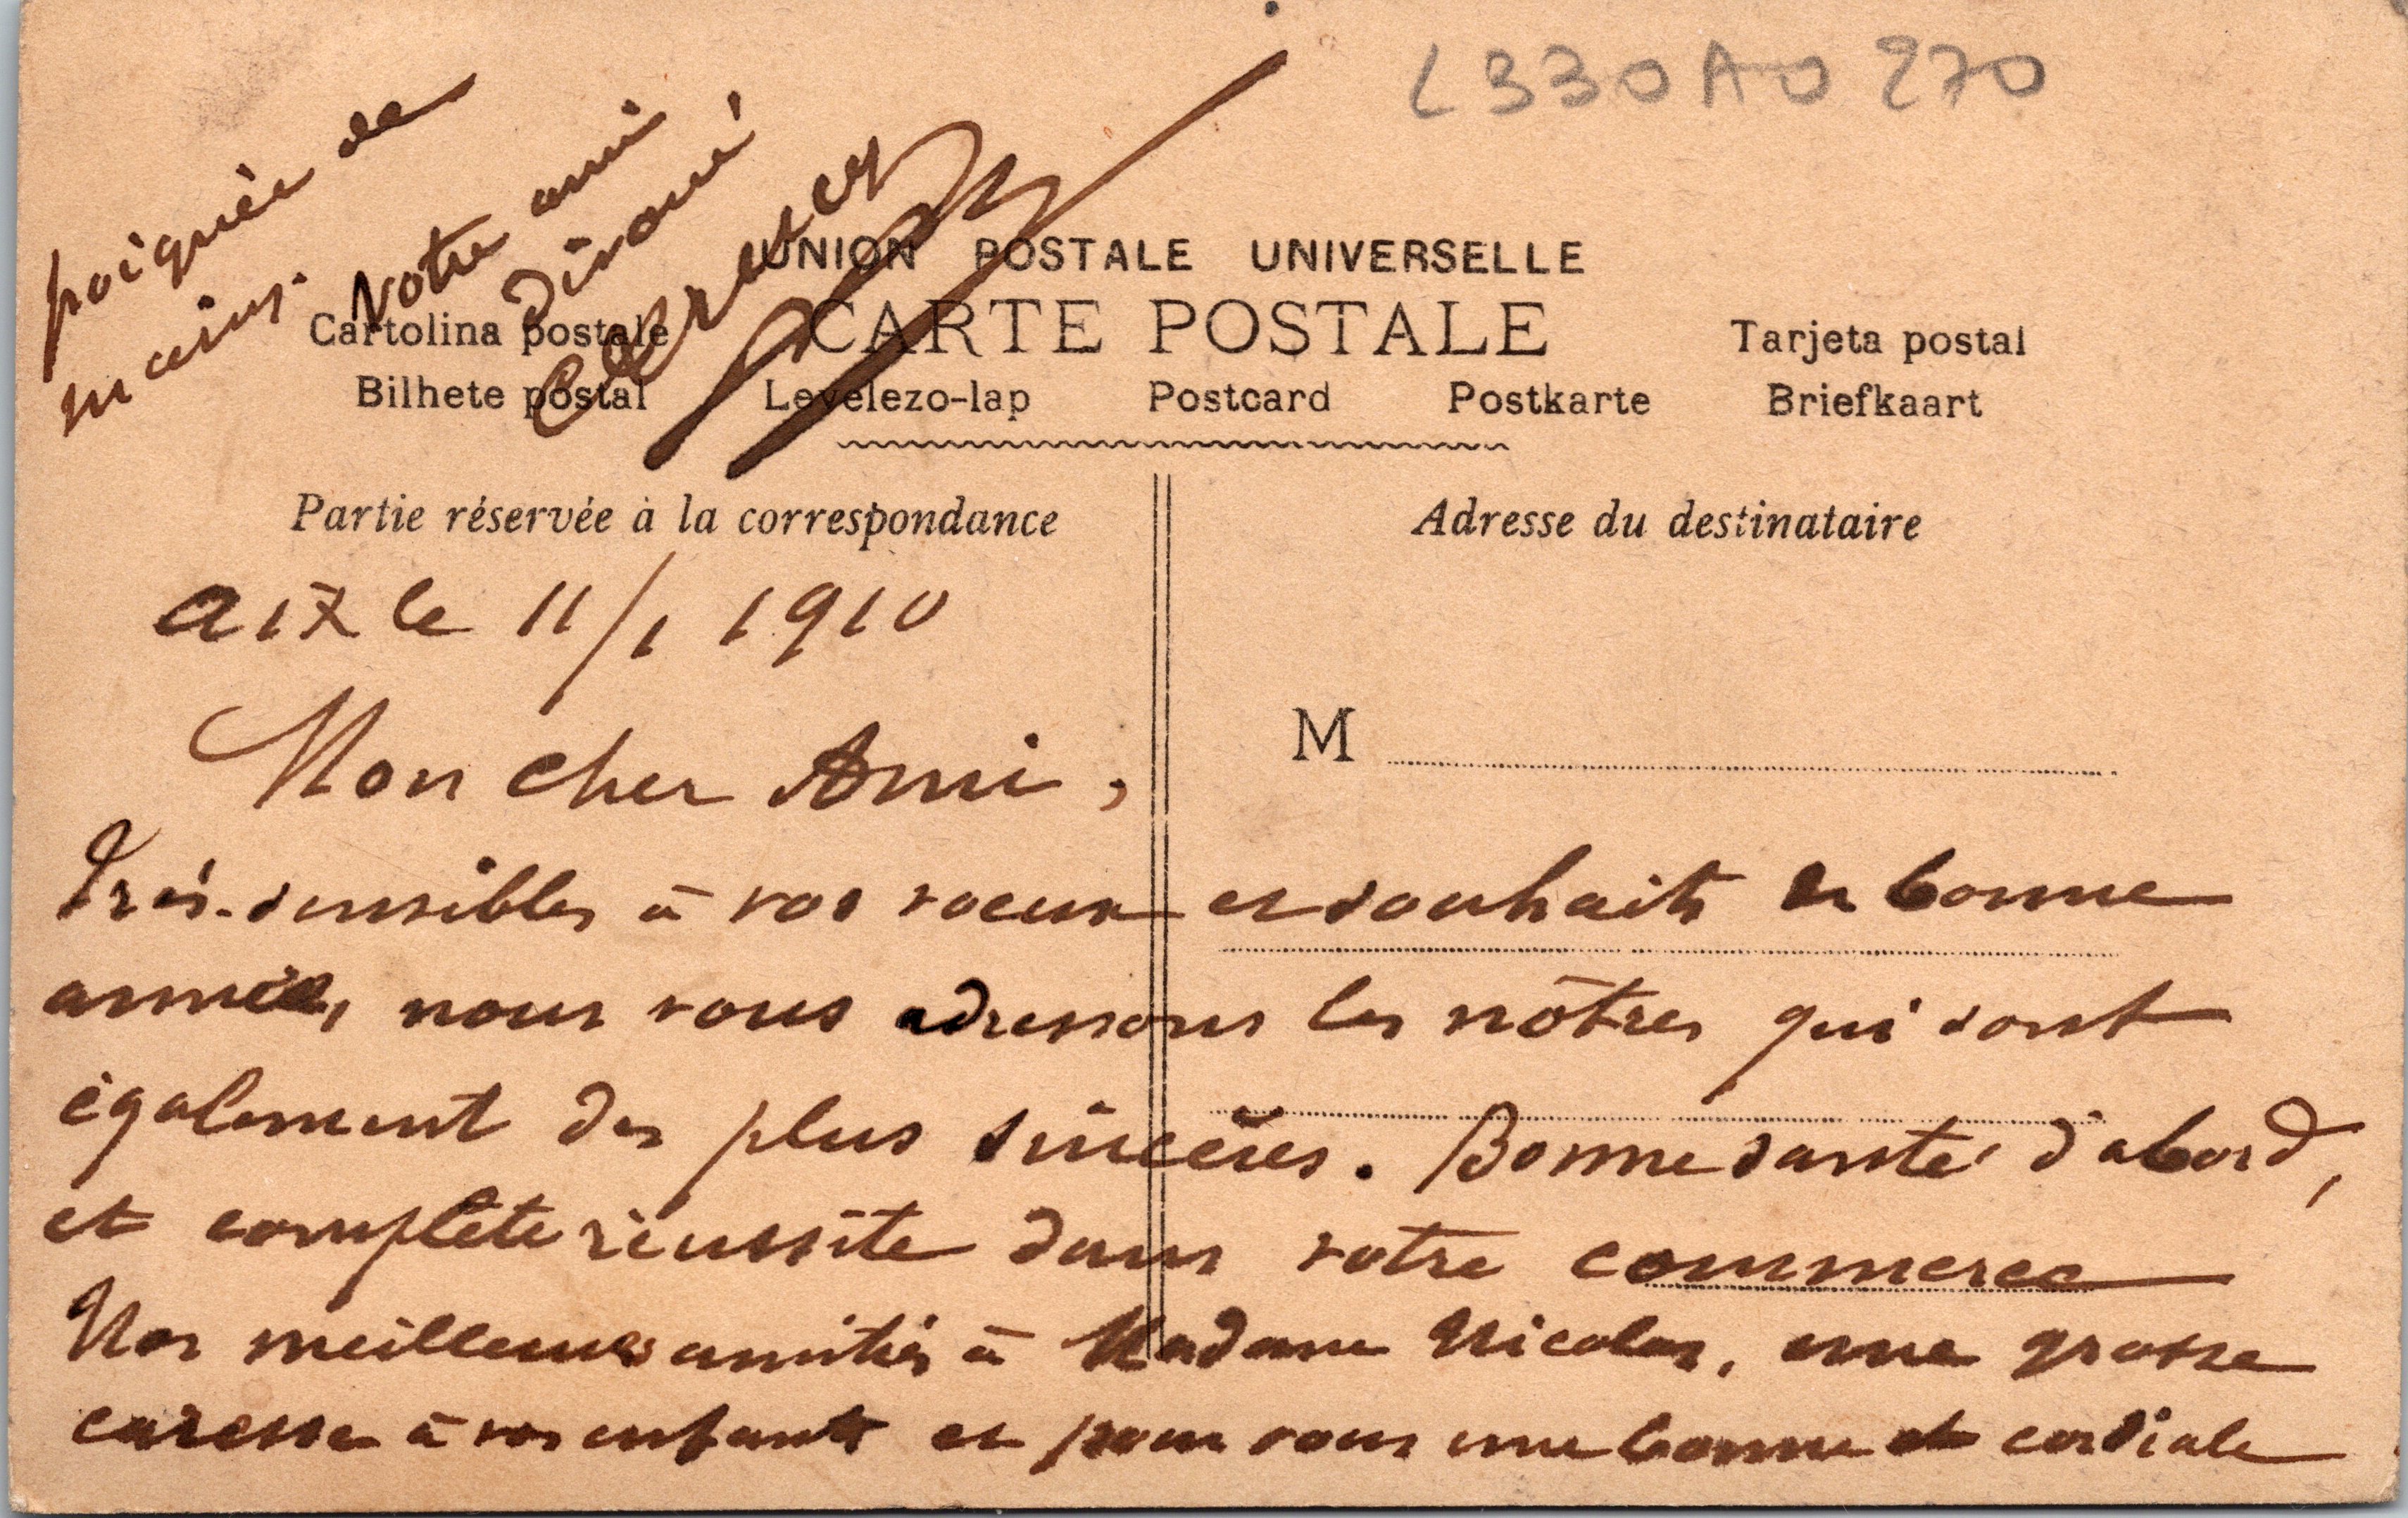 L330A0 270
UNION POSTALE UNIVERSELLE
CARTE POSTALE
Cartolina postale
Tarjeta postal
Bilhete postal Levelezo-lap Postcard Postkarte Briefkaart
Partie réservée à la correspondance
Adresse du destinataire
M
Aix le 11/1 1910
Mon cher Ami,
Très-sensibles à vos voeux et souhaits de bonne
année, nous vous adressons les nôtres qui sont
également des plus sincères. Bonne santé d'abord,
et complète réussite dans votre commerce
Nos meilleures amitiés à Madame Nicolas, une grosse
caresse à vos enfants et pour vous une bonne et cordiale
poignée de
mains.
Votre ami
dévoué